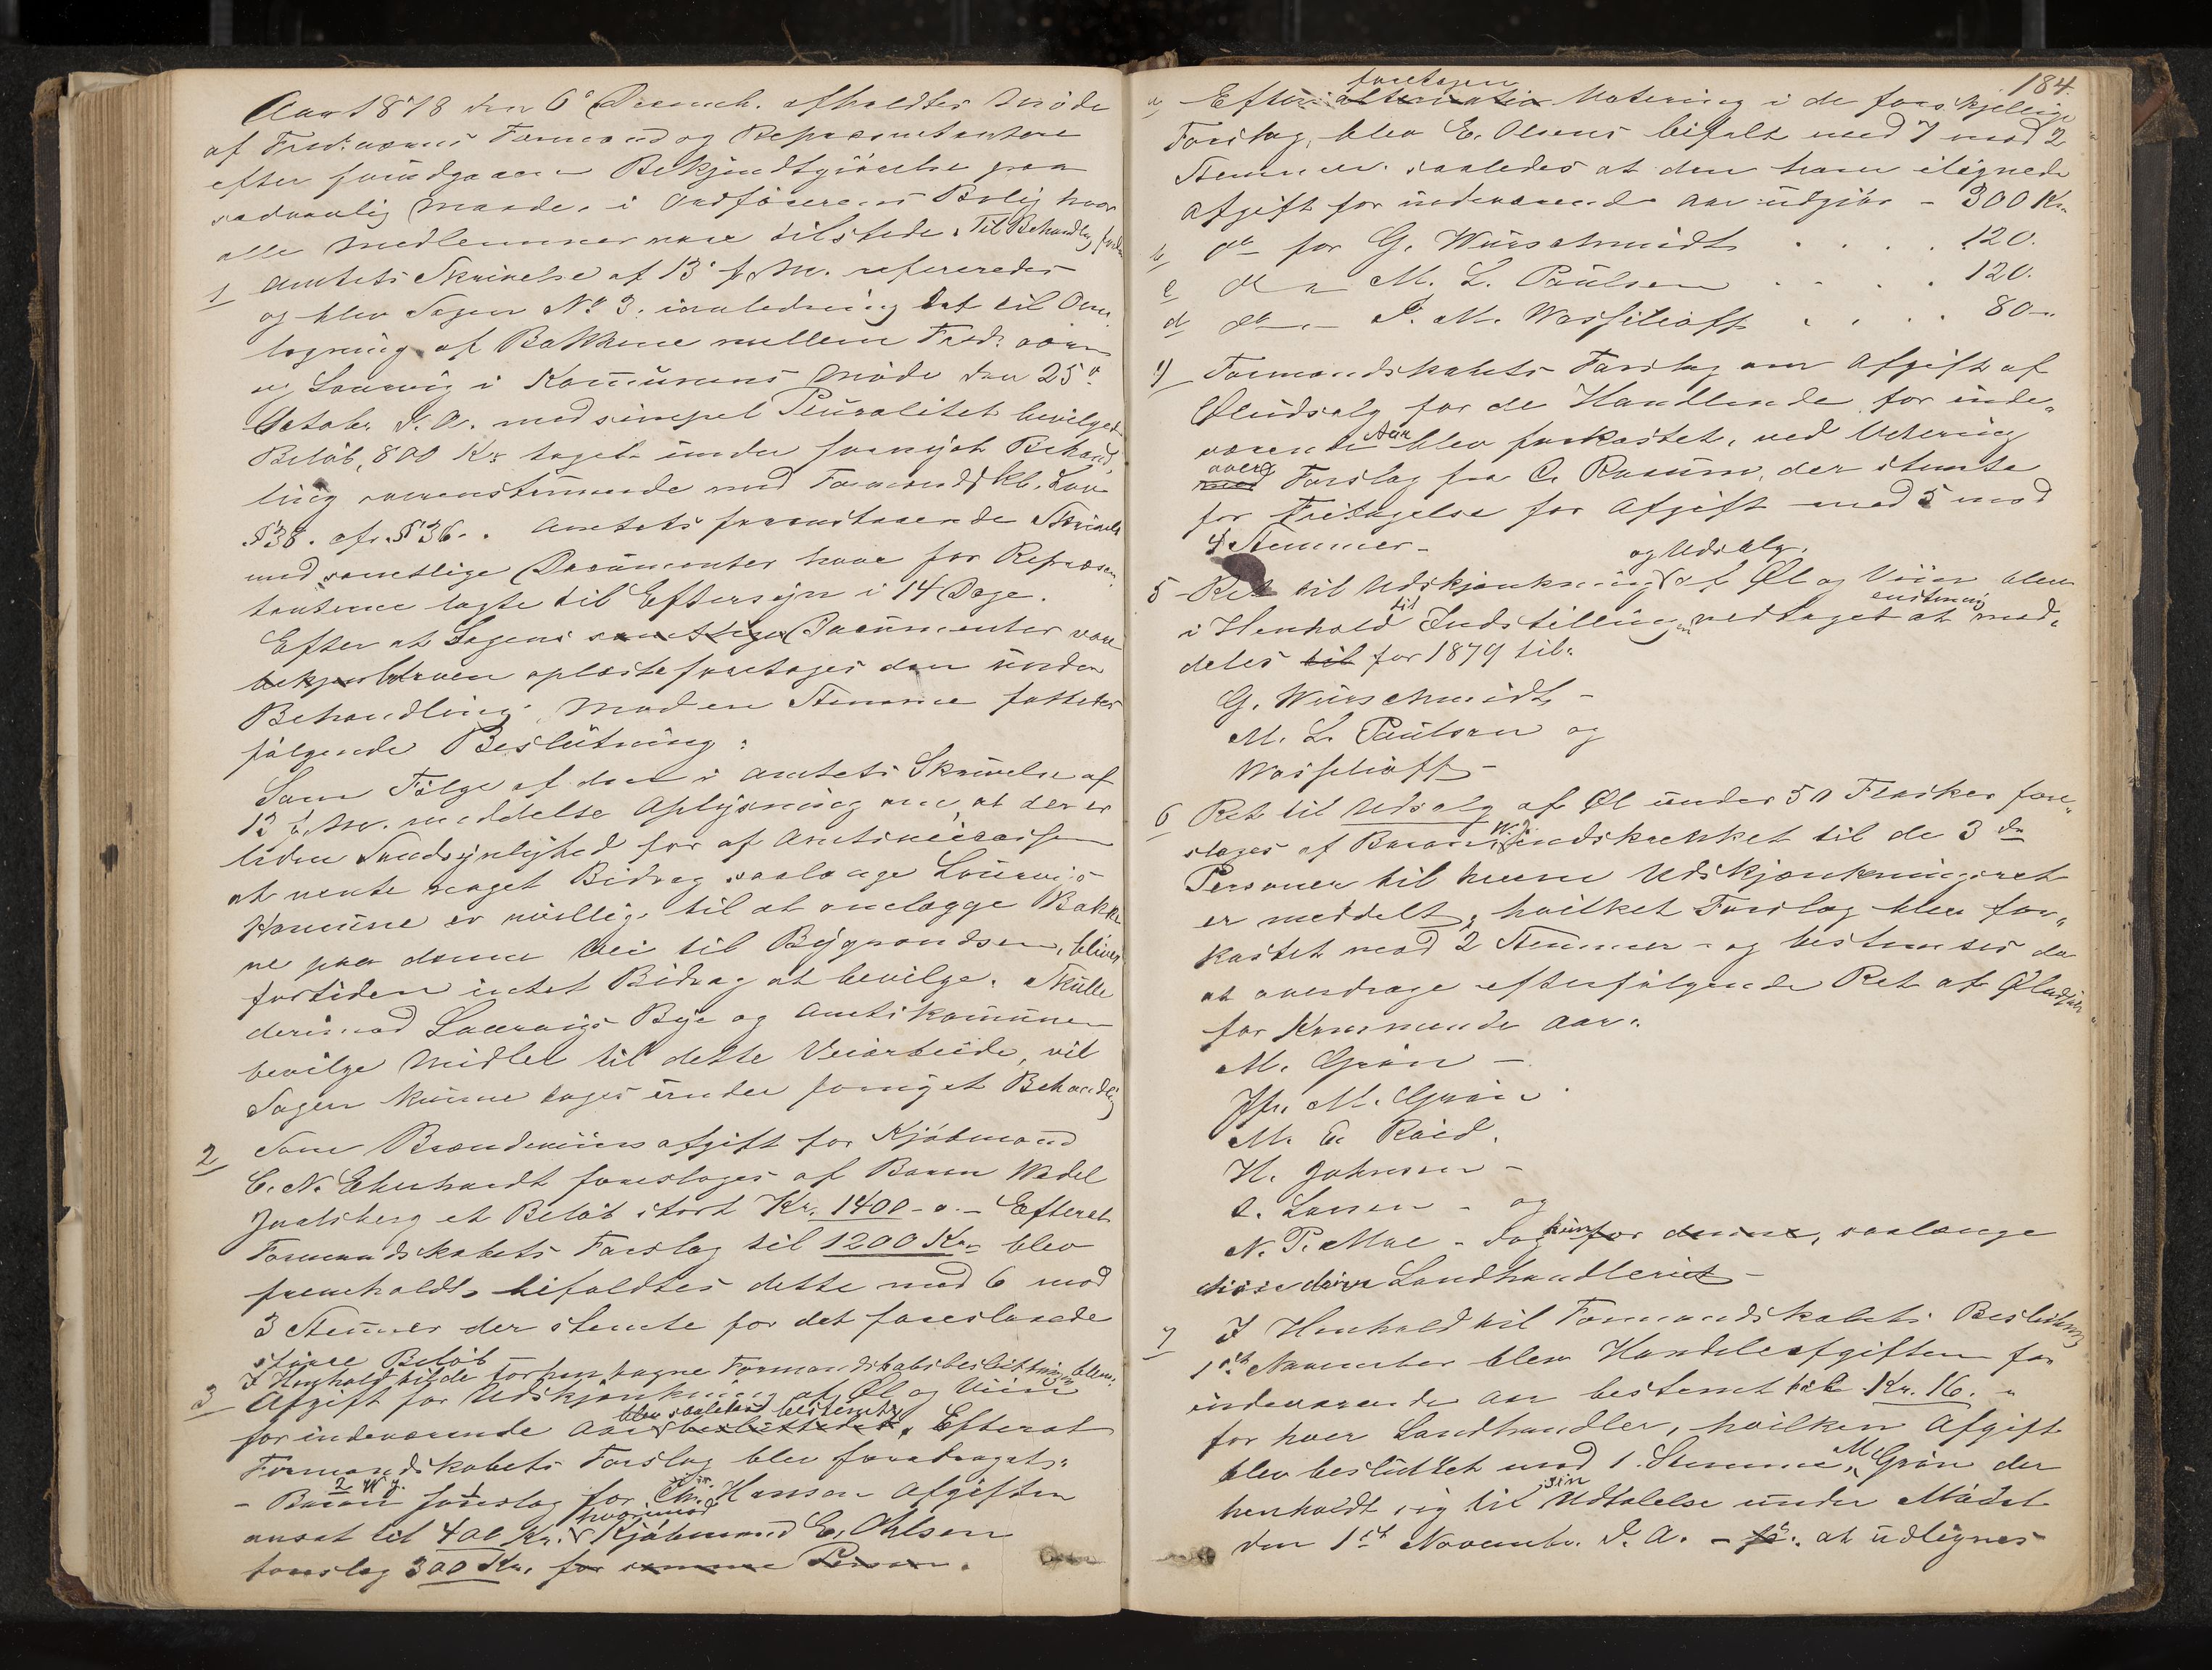 Aar 1878 den 6te Decemb. afholdtes Møde
af Fred.værns Formænd og Repræsentantere
efter forudgaaen Bekjendtgjørelse paa
sædvanlig Maade, i Ordførerens Bolig hvor
alle Medlemmer vare tilstede. Til Behandlg
1 Amtets Skrivelse af 13de f. M. refereredes
og blev Sagen No 3. ianledning Det til Om-
lægning af Bakkene mellem Fred.værn
og Laurvig i Kommunens Møde den 25de
Octobr. d. A. med simpel Pluralitet bevilgede
Beløb, 800 Kr. taget under fornyet Behand-
ling overensstemmende med Formandskb. Lov
§ 38. cfr. § 36. Amtets foranstaaende Skrivelse
med samtlige Documenter have for Repræsen-
tanterne lagte til Eftersyn i 14 Dage.
Efter at Sagens samtlige Documenter vare
bekjen bleven oplæste foretages den under
Behandling. Mod en Stemme fattedes
følgende Beslutning:
Som Følge af den i Amtets Skrivelse af
13 f. M. meddelte Oplysning om, at der er
liden Sandsynlighed for af Amtskommunen
at vente noget Bidrag saalænge Laurvigs
Komune er uvillig til at omlægge Bakke
ne paa denne Vei til Bygrændsen, bliver
fortiden intet Bidrag at bevilge. Skulle
derimod Laurvigs Bye og Amtskommunen
bevilge Midler til dette Veiarbeide, vil
Sagen kunne tages under fornyet Behandlg
2 Som Brændeviinsafgift for Kjøbmand
C. N. Eberhardt foreslages af Baron Wedel
Jarlsberg et Beløb stort Kr. 1400 - o. - Efterat
Formandskabets Forslag til 1200 Kr. blev
fremholdt, bifaldtes dette med 6 mod
3 Stemmer der stemte for det foreslaaede
større Beløb -
I Henhold til de for hen tagne Formandskabsbeslutninger blev
3 Afgift for Udskjænkning af Øl og Viin
blev saaledes bestemt
for indeværende Aar besluttedes. Efterat
Formandskabets Forslag blev foredraget.
2 W J. 1
- Baron foreslog for Chr. Hansen Afgiften
hvorimod
ansat til 400 Kr. Kjøbmand E. Ohlsen
forslag 300 Kr. for samme Person.
184.
foretagen
a Efter alternativ Votering i de forskjellige
Forslag, blev E. Olsens bifalt med 7 mod 2
Stemmer saaledes at den ham ilignede
Afgift for indeværende Aar udgjør - 300 Kr.
b do for G. Würschmidt . . . . 120.
c do " M. L. Paulsen . . . . 120.
d do - P. M. Wassilioff . . . 80 -
4) Formandskabets Forslag om Afgift af
Øludsalg for de Handlende for inde-
værende Aar blev forkastet, ved Votering
over
med Forslag fra C. Rasum, der stemte
for Fritagelse for Afgift med 5 mod
4 Stemmer -
og Udsalg.
5 Ret til Udskjænkning af Øl og Viin blev
til eenstemig
i Henhold Indstillingen vedtaget at med-
deles til for 1879 til.
G. Würschmidt -
M. L. Paulsen og
Wassilioff -
6 Ret til Udsalg af Øl under 50 Flasker fore-
W. J.
slages af Baron indskrænket til de 3 de
Personer til hvem Udskjænkningsret
er meddelt, hvilket Forslag blev for-
kastet mod 2 Stemmer - og bestemtes da
at overdrage efterfølgende Ret af Øludsalg
for kommende Aar.
M. Grøn -
Jfr. M. Grøn
M. E. Roed.
H. Johnsen -
O. Larsen - og
N. P. Moe - dog kun for denne, saalænge
disse drive Landhandleriet -
7 I Henhold til Formandskabets Beslutning
1ste November blev Handelsafgiften for
indeværende Aar bestemt til Kr. 16. -
for hver Landhandler, hvilken Afgift
blev besluttet mod 1. Stemme, M. Grøn der
sin
henholdt sig til Udtalelse under Mødet
den 1ste Novembr. d. A. - at udlignes